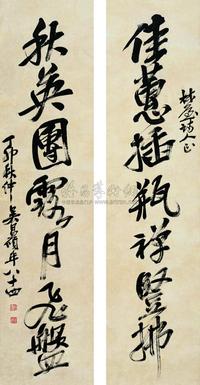 佳蕙插瓶禅竖拂
秋英團露月飛盤
丁卯秋仲 吳昌碩年八十四